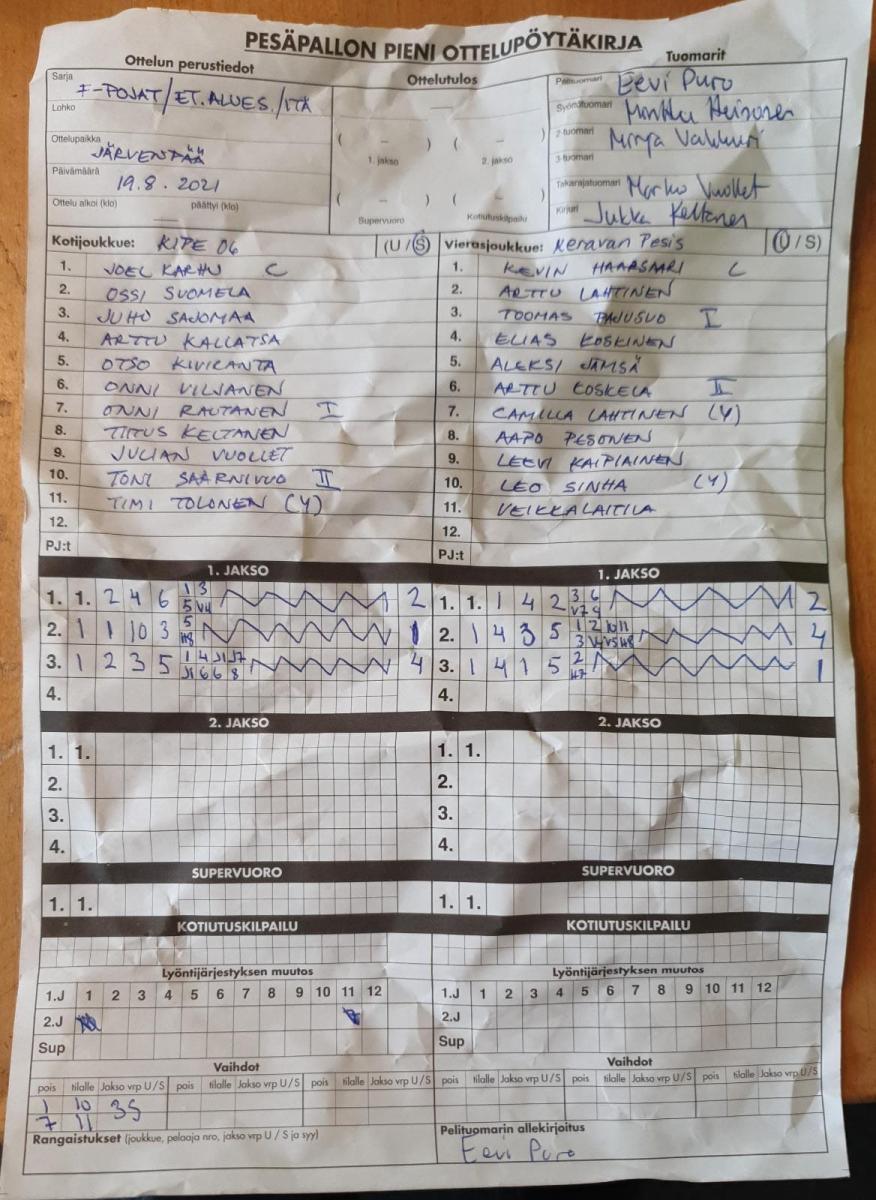 PESÄPALLON PIENI OTTELUPÖYTÄKIRJA
Ottelun perustiedot
Ottelutulos
Tuomarit
Sarja
F-POJAT/ET.ALUES./ITÄ
Lohko
Ottelupaikka
JÄRVENPÄÄ
Päivämäärä
19.8.2021
Ottelu alkoi (klo) päättyi (klo)
( – ) ( – )
1. jakso 2. jakso
( – ) ( – )
Supervuoro Kotiutuskilpailu
Pelituomari Eevi Puro
Syöttötuomari Markku Heinonen
2-tuomari Minja Vakkuri
3-tuomari
Takarajatuomari Marko Vuollet
Kirjuri Jukka Keltanen
Kotijoukkue: KIPE 06 (U / S)
1. JOEL KARHU C
2. OSSI SUOMELA
3. JUHO SAJOMAA
4. ARTTU KALLATSA
5. OTSO KIVIRANTA
6. ONNI VILJANEN
7. ONNI RAUTANEN I
8. TIITUS KELTANEN
9. JULIAN VUOLLET
10. TONI SAARNIVUO II
11. TIMI TOLONEN (Y)
12.
PJ:t
Vierasjoukkue: Keravan Pesis (U / S)
1. KEVIN HAARSAARI C
2. ARTTU LAHTINEN
3. TOOMAS PAJUSUO I
4. ELIAS KOSKINEN
5. ALEKSI JÄMSÄ
6. ARTTU KOSKELA II
7. CAMILLA LAHTINEN (Y)
8. AAPO PESONEN
9. LEEVI KAIPIAINEN
10. LEO SINHA (Y)
11. VEIKKA LAITILA
12.
PJ:t
1. JAKSO
1. 1. 2 4 6 1 3 5 V4 2
2. 1 1 10 3 5 H8 1
3. 1 2 3 5 1 4 J1 J7 J1 6 6 8 4
4.
1. JAKSO
1. 1. 1 4 2 3 6 V7 9 2
2. 1 4 3 5 1 2 10 11 3 V4 V5 H8 4
3. 1 4 1 5 2 H7 1
4.
2. JAKSO
1. 1.
2.
3.
4.
2. JAKSO
1. 1.
2.
3.
4.
SUPERVUORO
1. 1.
SUPERVUORO
1. 1.
KOTIUTUSKILPAILU
KOTIUTUSKILPAILU
Lyöntijärjestyksen muutos
1.J 1 2 3 4 5 6 7 8 9 10 11 12
2.J
Sup
Lyöntijärjestyksen muutos
1.J 1 2 3 4 5 6 7 8 9 10 11 12
2.J
Sup
Vaihdot
pois tilalle Jakso vrp U / S pois tilalle Jakso vrp U / S pois tilalle Jakso vrp U / S
1 10 3S
7 11
Vaihdot
pois tilalle Jakso vrp U / S pois tilalle Jakso vrp U / S pois tilalle Jakso vrp U / S
Rangaistukset (joukkue, pelaaja nro, jakso vrp U / S ja syy)
Pelituomarin allekirjoitus
Eevi Puro